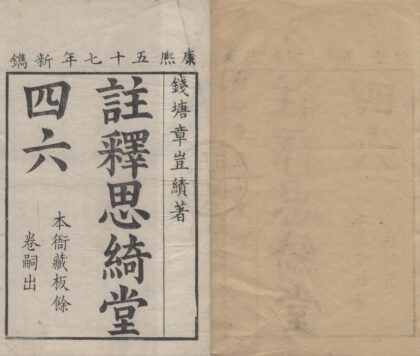 康熙五十七年新鐫
錢塘章豈績著
註釋思綺堂
四六
本衙藏板餘
卷嗣出